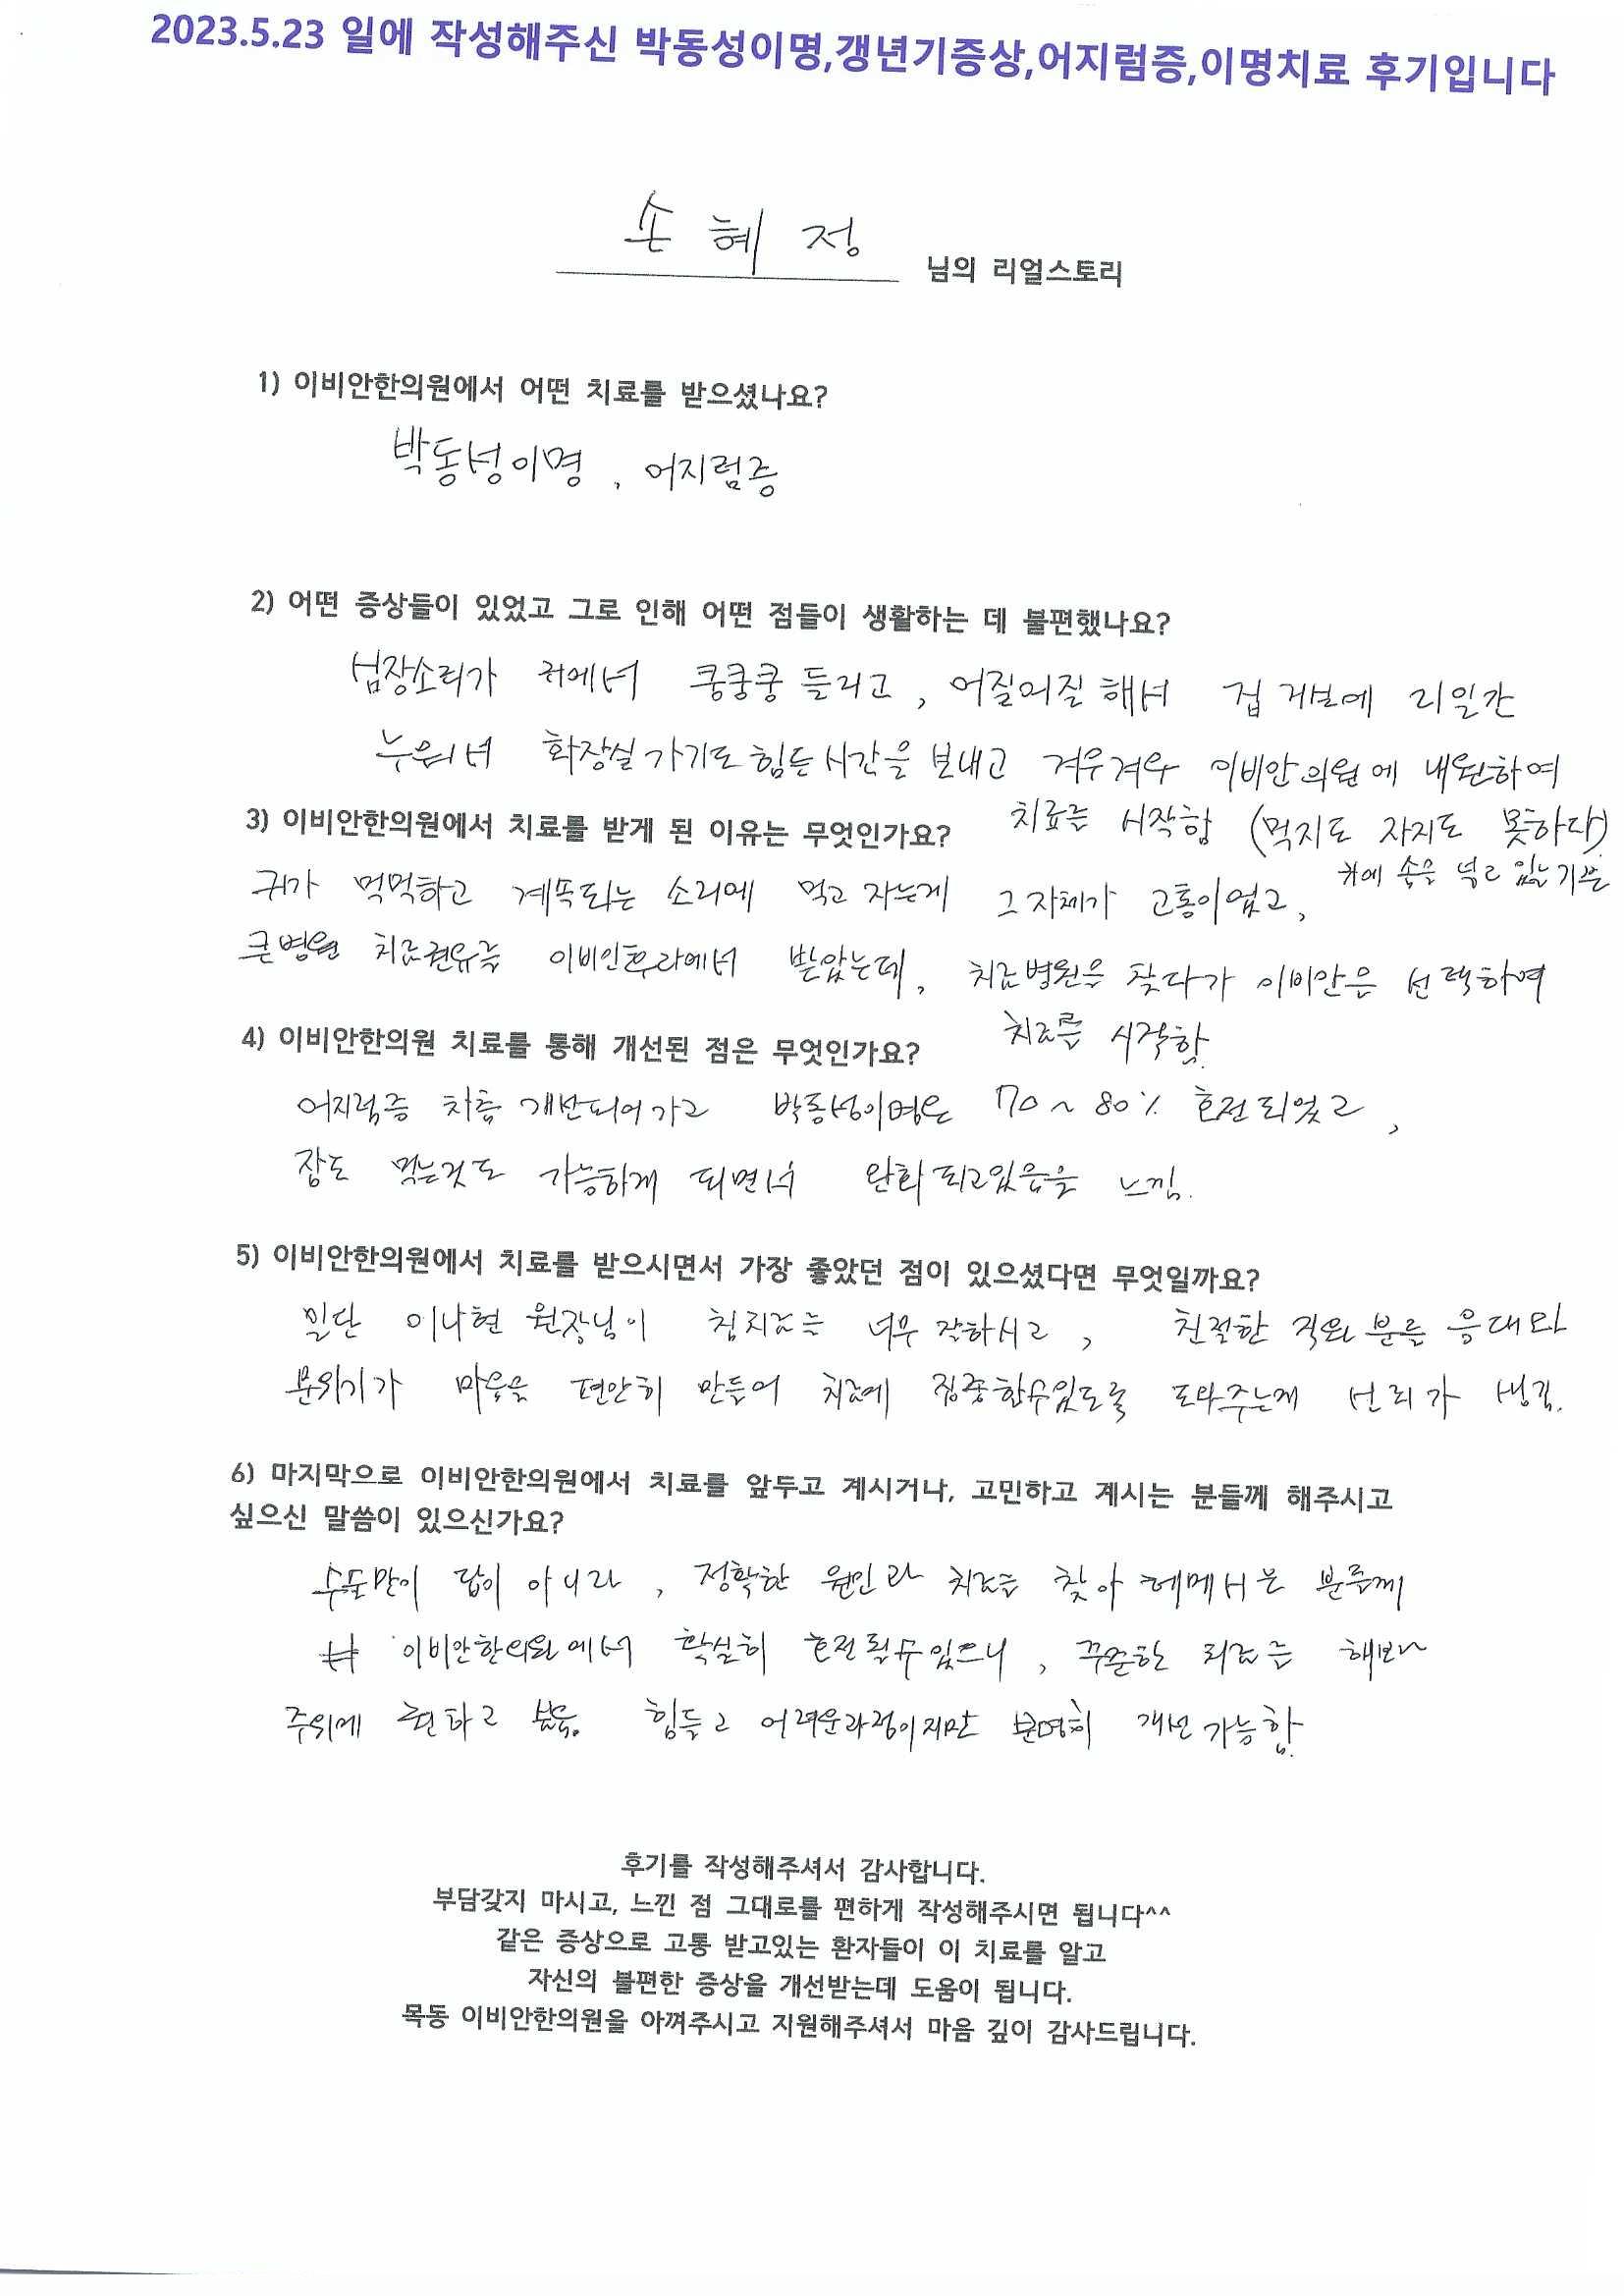 2023.5.23 일에 작성해주신 박동성이명,갱년기증상,어지럼증,이명치료 후기입니다
손 혜 정 님의 리얼스토리
1) 이비안한의원에서 어떤 치료를 받으셨나요?
박동성이명, 어지럼증
2) 어떤 증상들이 있었고 그로 인해 어떤 점들이 생활하는 데 불편했나요?
심장소리가 귀에서 쿵쿵쿵 들리고, 어질어질해서 집 일간
누워서 화장실가기도 힘든 시간을 보내고 겨우겨우 이비안의원에 내원하여
치료를 시작함 (먹지도 자지도 못하다)
3) 이비안한의원에서 치료를 받게 된 이유는 무엇인가요?
귀에 솜을 넣고 있는 기분
귀가 먹먹하고 계속되는 소리에 먹고 자는게 그 자체가 고통이었고,
큰병원 치료권유를 이비인후과에서 받았는데, 치료병원을 찾다가 이비안을 선택하여
치료를 시작함.
4) 이비안한의원 치료를 통해 개선된 점은 무엇인가요?
어지럼증 차츰 개선되어가고 박동성이명은 70~80% 호전되었고,
잠도 먹는것도 가능하게 되면서 완화되고있음을 느낌.
5) 이비안한의원에서 치료를 받으시면서 가장 좋았던 점이 있으셨다면 무엇일까요?
일단 이나현 원장님이 침치료를 너무 잘하시고, 친절한 직원분들 응대와
분위기가 마음을 편안히 만들어 치료에 집중할수있도록 도와주는게 신뢰가 생김.
6) 마지막으로 이비안한의원에서 치료를 앞두고 계시거나, 고민하고 계시는 분들께 해주시고
싶으신 말씀이 있으신가요?
수술만이 답이 아니라, 정확한 원인과 치료를 찾아 헤메시는 분들께
이비안한의원에서 확실히 호전될수있으니, 꾸준한 치료를 해보라
주위에 하고 있음. 힘들고 어려운과정이지만 분명히 개선가능함.
후기를 작성해주셔서 감사합니다.
부담갖지 마시고, 느낀 점 그대로를 편하게 작성해주시면 됩니다^^
같은 증상으로 고통 받고있는 환자들이 이 치료를 알고
자신의 불편한 증상을 개선받는데 도움이 됩니다.
목동 이비안한의원을 아껴주시고 지원해주셔서 마음 깊이 감사드립니다.